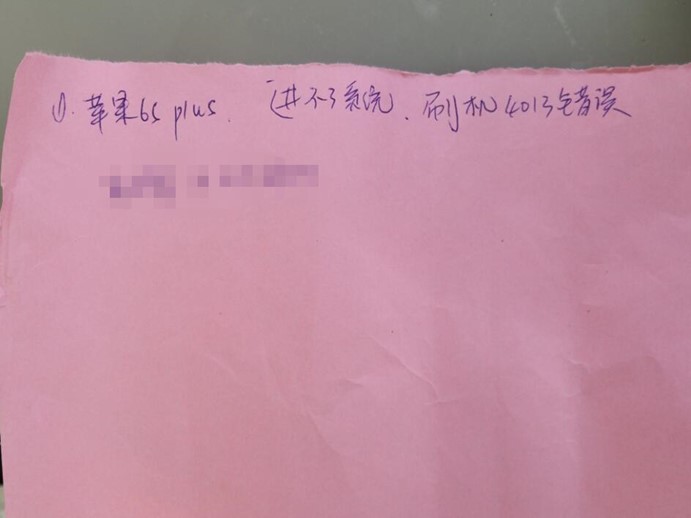 ①. 苹果6s plus. 进不了系统. 刷机4013错误